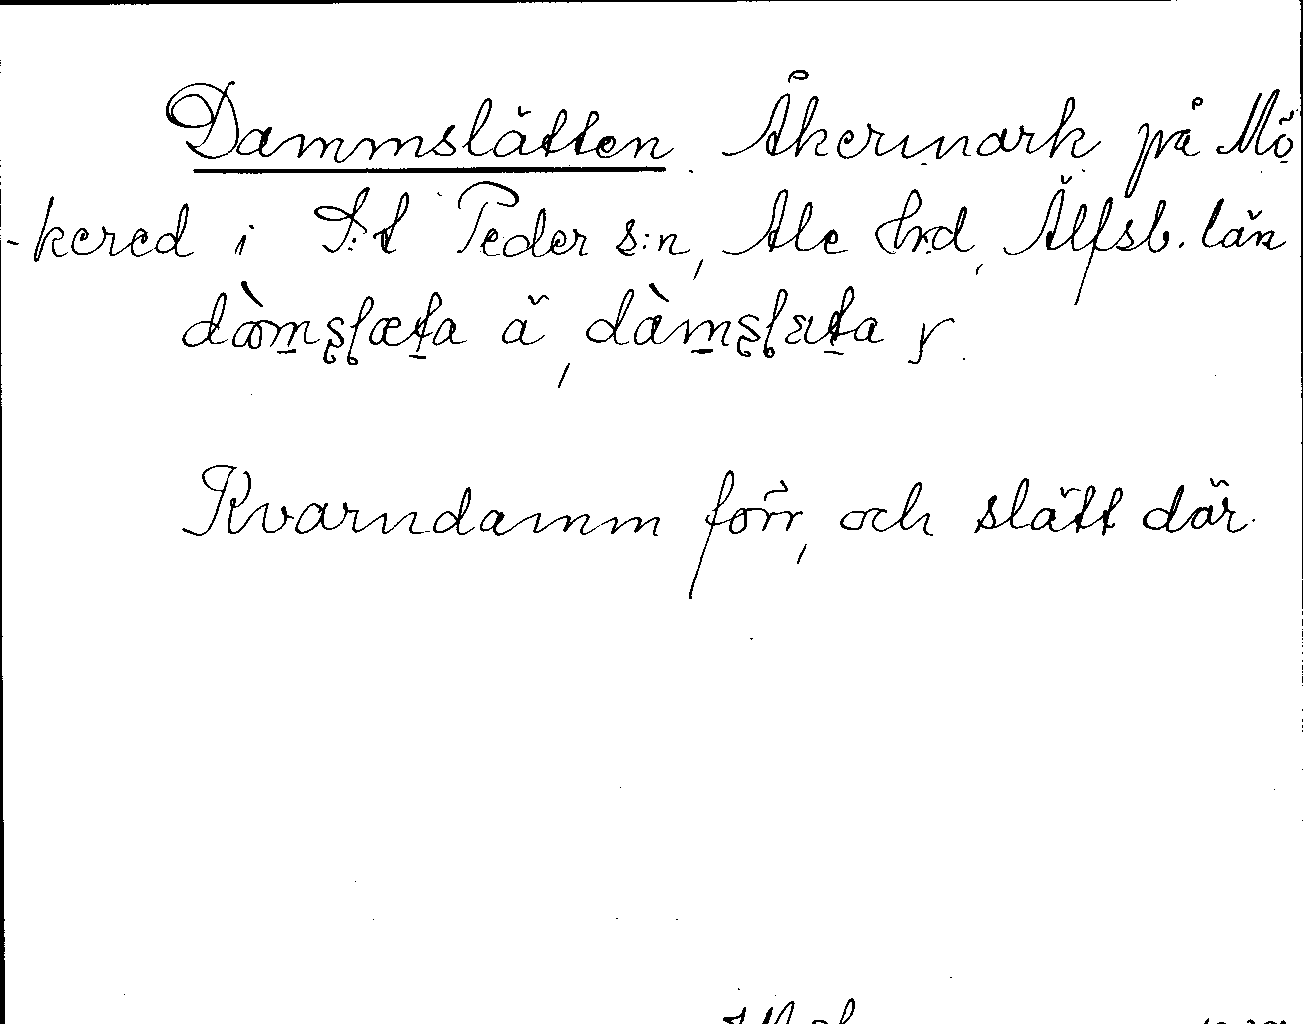 Dammslätten. Åkermark på Mö
-kered i S:t Peder s:n, Ale hrd, Älfsb. län
dàmslæta ä, dàmslæta y.
Kvarndamm förr, och slätt där.